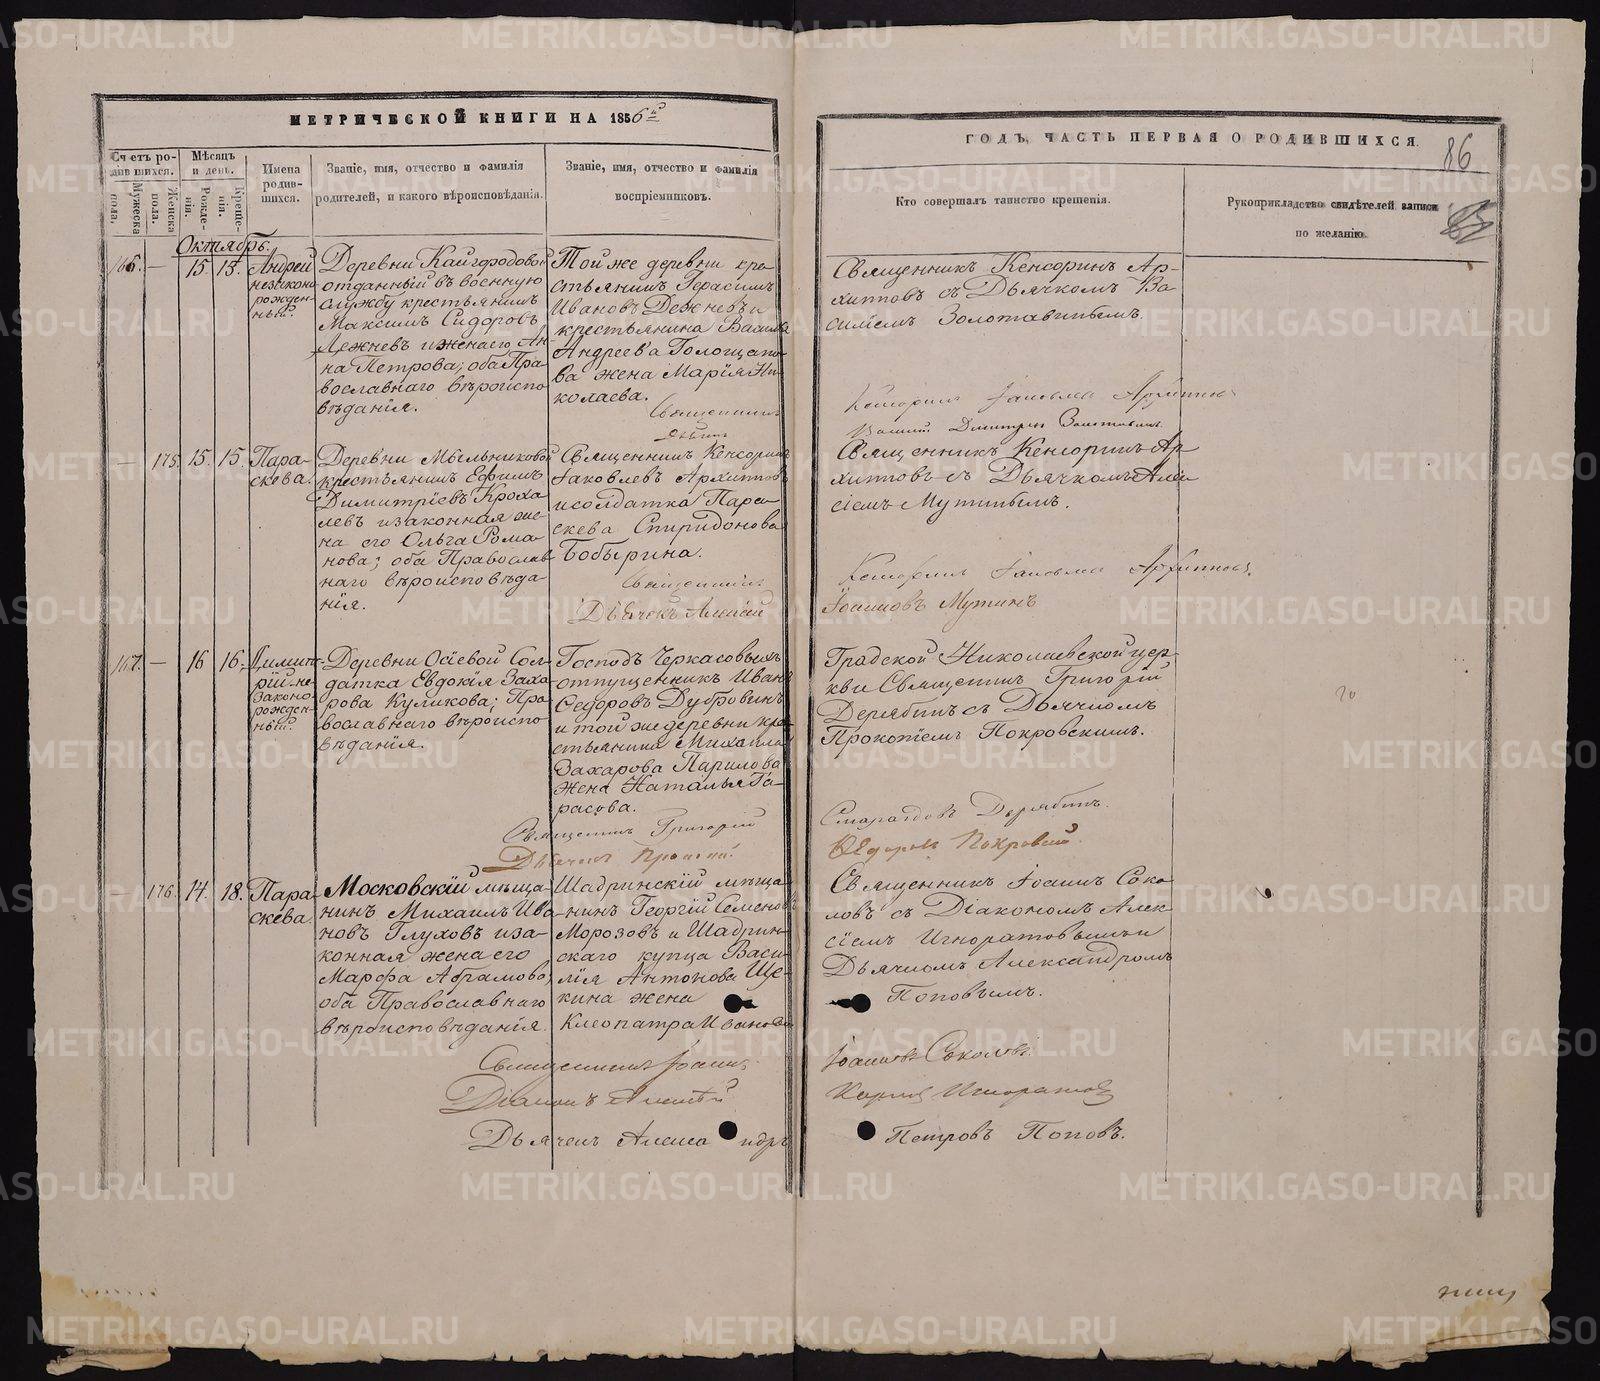 МЕТРИЧЕСКОЙ КНИГИ НА 1856й
ГОДЪ, ЧАСТЬ ПЕРВАЯ О РОДИВШИХСЯ.
86
Счетъ ро-
дившихся.
Мужеска
пола.
Женска
пола.
Мѣсяцъ
и день.
Рожде-
нія.
Креще-
нія.
Имена
родив-
шихся.
Званіе, имя, отчество и фамилія
родителей, и какого вѣроисповѣданія.
Званіе, имя, отчество и фамилія
воспріемниковъ.
Кто совершалъ таинство крещенія.
Рукоприкладство свидѣтелей записи
по желанію.
Октябрь.
166. — 15. 15.
Андрей
незаконно
рожден-
ный.
Деревни Кайгородовой
отданный въ военную
службу крестьянинъ
Максимъ Сидоровъ
Дежневъ и жена его Ан-
на Петрова; оба Пра-
вославнаго вѣроиспо-
вѣданія.
Той же деревни кре-
стьянинъ Герасимъ
Ивановъ Дежневъ и
крестьянина Василія
Андреева Голощапо-
ва жена Марія Ни-
колаева.
Священникъ
Священникъ Кенсоринъ Ар-
хиповъ съ Дьячкомъ Ва-
силіемъ Золотавинымъ.
Кенсоринъ Іаковлевъ Архиповъ
Василій Димитріевъ Золотавинъ.
— 175. 15. 15.
Пара-
скева.
Деревни Мыльниковой
крестьянинъ Ефимъ
Димитріевъ Кроха-
левъ и законная же-
на его Ольга Рома-
нова; оба Православ-
наго вѣроисповѣда-
нія.
Священникъ Кенсоринъ
Іаковлевъ Архиповъ
и солдатка Пара-
скева Спиридонова
Бобырина.
Священникъ
Дьячекъ Алексій
Священникъ Кенсоринъ Ар-
хиповъ съ Дьячкомъ Алек-
сіемъ Мутинымъ.
Кенсоринъ Іаковлевъ Архиповъ.
Іоанновъ Мутинъ
167. — 16 16.
Димит-
рій не-
законо-
рожден-
ный.
Деревни Осіевой Сол-
датка Евдокія Заха-
рова Куликова; Пра-
вославнаго вѣроиспо-
вѣданія.
Господъ Черкасовыхъ
отпущенникъ Иванъ
Седоровъ Дубровинъ
и той же деревни кре-
стьянина Михаила
Захарова Парилова
жена Наталья Та-
расова.
Священникъ Григорій
Дьячекъ Прокопій.
Градской Николаевской цер-
кви Священникъ Григорій
Дерябинъ съ Дьячкомъ
Прокопіемъ Покровскимъ.
Смарагдовъ Дерябинъ.
Ѳедоровъ Покровскій.
— 176. 14. 18.
Пара-
скева.
Московскій мѣща-
нинъ Михаилъ Ива-
новъ Глуховъ и за-
конная жена его
Марфа Абрамова,
оба Православнаго
вѣроисповѣданія.
Шадринскій мѣща-
нинъ Георгій Семеновъ
Морозовъ и Шадрин-
скаго купца Васи-
лія Антонова Ще-
кина жена
Клеопатра Иванова
Священникъ Іоаннъ
Діаконъ Алексѣй
Дьячекъ Александръ
Священникъ Іоаннъ Соко-
ловъ съ Діакономъ Алек-
сіемъ Игноратовымъ и
Дьячкомъ Александромъ
Поповымъ.
Іоанновъ Соколовъ.
Карповъ Игноратовъ
Петровъ Поповъ.
METRIKI.GASO-URAL.RU